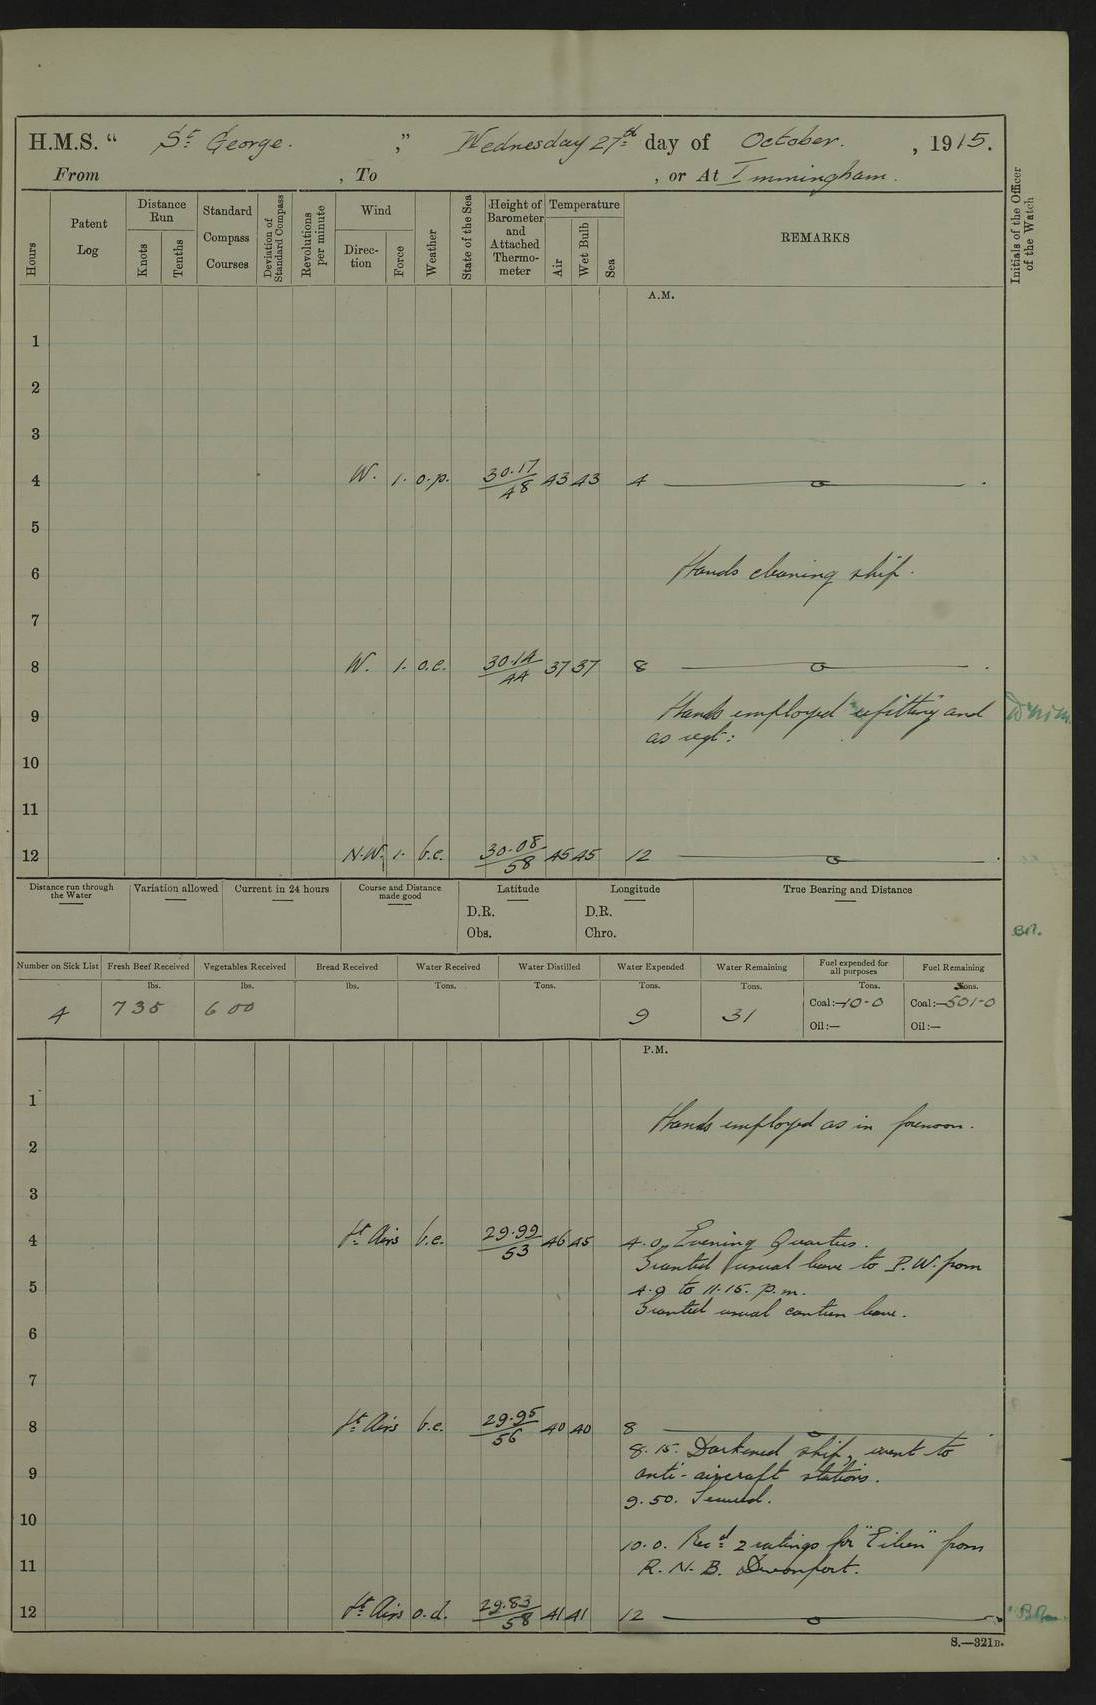 H.M.S. “ St George. ,” Wednesday 27th day of October. , 1915.
From , To , or At Immingham.
Hours
Patent Log
Distance Run
Knots
Tenths
Standard Compass Courses
Deviation of Standard Compass
Revolutions per minute
Wind
Direction
Force
Weather
State of the Sea
Height of Barometer and Attached Thermometer
Temperature
Air
Wet Bulb
Sea
REMARKS
Initials of the Officer of the Watch
A.M.
1
2
3
4 W. 1. o.p. 30.17/48 43 43 4
5
6 Hands cleaning ship.
7
8 W. 1. o.c. 30.14/44 37 37 8
9 Hands employed refitting and
as reqt:
10
11
12 N.W. 1. b.c. 30.08/58 45 45 12
Distance run through the Water
Variation allowed
Current in 24 hours
Course and Distance made good
Latitude
D.R.
Obs.
Longitude
D.R.
Chro.
True Bearing and Distance
Number on Sick List
4
Fresh Beef Received
lbs.
735
Vegetables Received
lbs.
600
Bread Received
lbs.
Water Received
Tons.
Water Distilled
Tons.
Water Expended
Tons.
9
Water Remaining
Tons.
31
Fuel expended for all purposes
Tons.
Coal:—10-0
Oil:—
Fuel Remaining
Tons.
Coal:—501-0
Oil:—
P.M.
1
Hands employed as in forenoon.
2
3
4 Lt Airs b.c. 29.99/53 46 45 4.0. Evening Quarters.
Granted usual leave to P.W. from
5 4.0 to 11.15. p.m.
Granted usual canteen leave.
6
7
8 Lt Airs b.c. 29.95/56 40 40 8
8.15. Darkened ship, went to
9 anti-aircraft stations.
9.50. Secured.
10
10.0. Recd 2 ratings for "Eileen" from
11 R.N.B. Devonport.
12 Lt Airs o.d. 29.83/58 41 41 12
S.—321B.